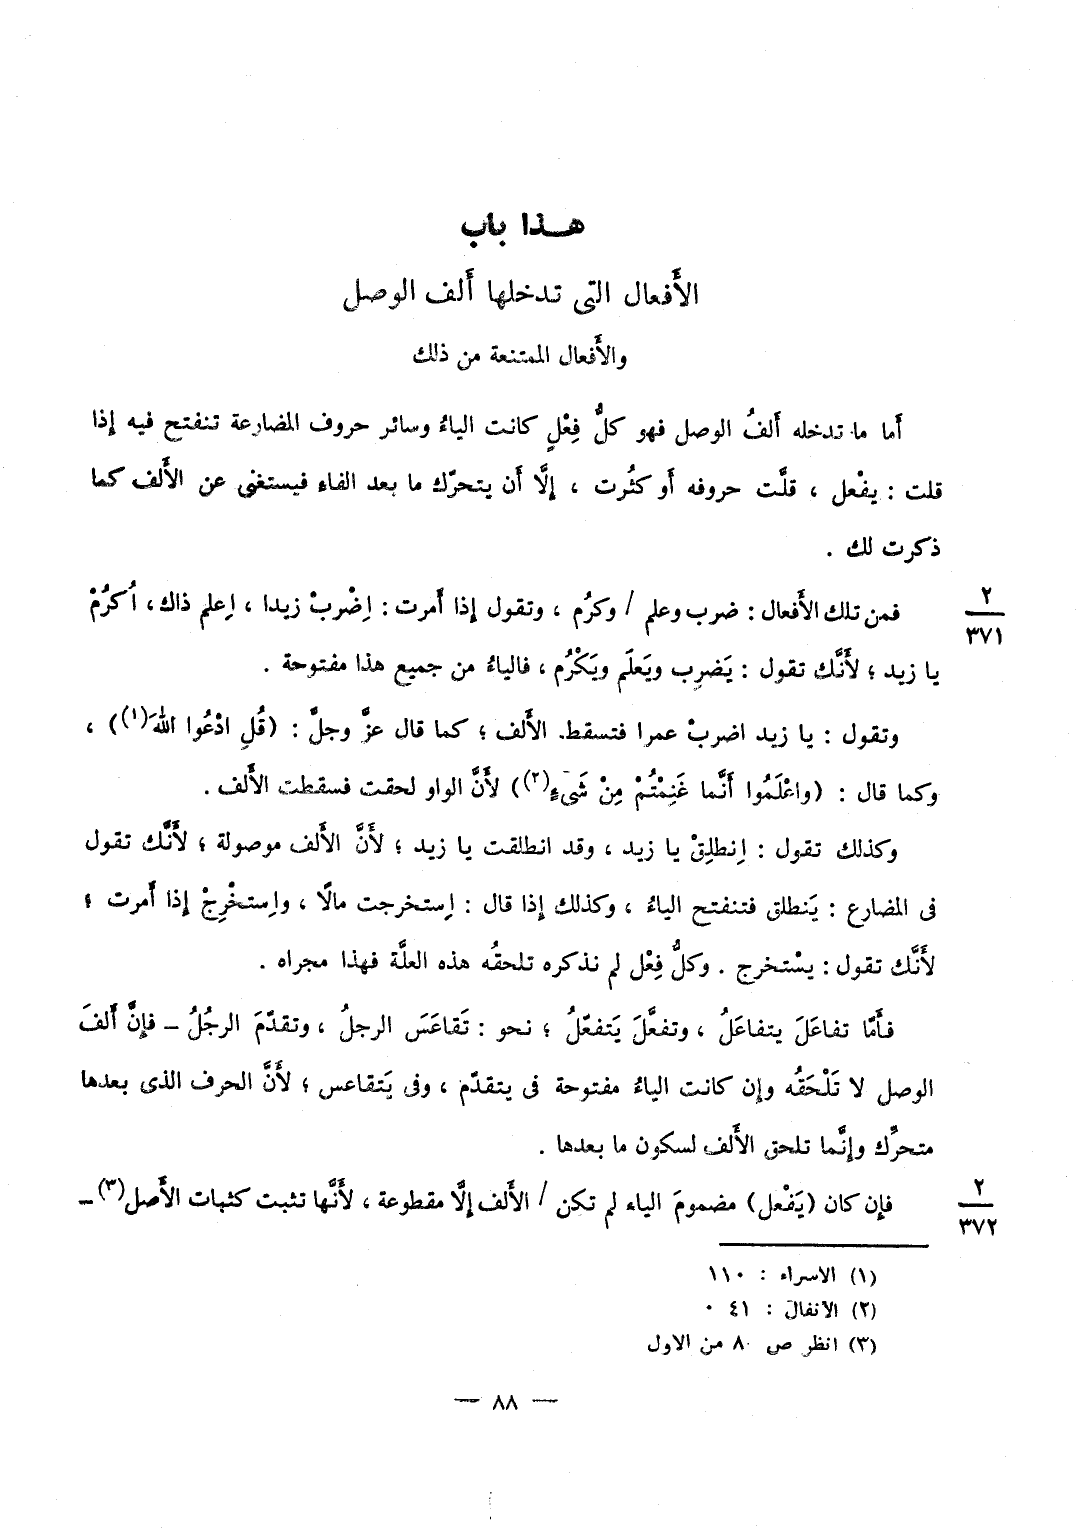 هـذا باب
الأَفعال التى تدخلها أَلف الوصل
والأَفعال الممتنعة من ذلك
أَما ما تدخله أَلفُ الوصل فهو كلُّ فِعْلٍ كانت الياءُ وسائر حروف المضارعة تنفتح فيه إِذا
قلت : يفْعل ، قلَّت حروفه أَو كثُرت ، إِلَّا أَن يتحرّك ما بعد الفاء فيستغنى عن الأَلف كما
ذكرت لك .
فمن تلك الأَفعال : ضرب وعلم / وكرُم ، وتقول إِذا أَمرت : اِضْربْ زيدا ، اِعلم ذاك ، اُكرُمْ
٢
٣٧١
يا زيد ؛ لأَنَّك تقول : يَضرِب ويَعلَم ويَكْرُم ، فالياءُ من جميع هذا مفتوحة .
وتقول : يا زيد اضربْ عمرا فتسقط الأَلف ؛ كما قال عزَّ وجلَّ : (قُلِ ادْعُوا اللهَ(١)) ،
وكما قال : (واعْلَمُوا أَنَّما غَنِمْتُمْ مِنْ شَىْءٍ(٢)) لأَنَّ الواو لحقت فسقطت الأَلف .
وكذلك تقول : اِنطلِقْ يا زيد ، وقد انطلقت يا زيد ؛ لأَنَّ الأَلف موصولة ؛ لأَنَّك تقول
فى المضارع : يَنطلق فتنفتح الياءُ ، وكذلك إِذا قال : اِستخرجت مالًا ، واِستخْرِجْ إِذا أَمرت ؛
لأَنَّك تقول : يسْتخرج . وكلُّ فِعْل لم نذكره تلحقُه هذه العلَّة فهذا مجراه .
فأَمّا تفاعَلَ يتفاعَلُ ، وتفعَّلَ يَتفعّلُ ؛ نحو : تَقاعَسَ الرجلُ ، وتقدّمَ الرجُلُ ــ فإِنَّ أَلفَ
الوصل لا تَلْحَقُه وإِن كانت الياءُ مفتوحة فى يتقدّم ، وفى يَتقاعس ؛ لأَنَّ الحرف الذى بعدها
متحرِّك وإِنَّما تلحق الأَلف لسكون ما بعدها .
فإِن كان (يَفْعل) مضمومَ الياء لم تكن / الأَلف إِلَّا مقطوعة ، لأَنَّها تثبت كثبات الأَصل(٣)ــ
٢
٣٧٢
(١) الاسراء : ١١٠
(٢) الانفال : ٤١ ٠
(٣) انظر ص ٨٠ من الاول
— ٨٨ —